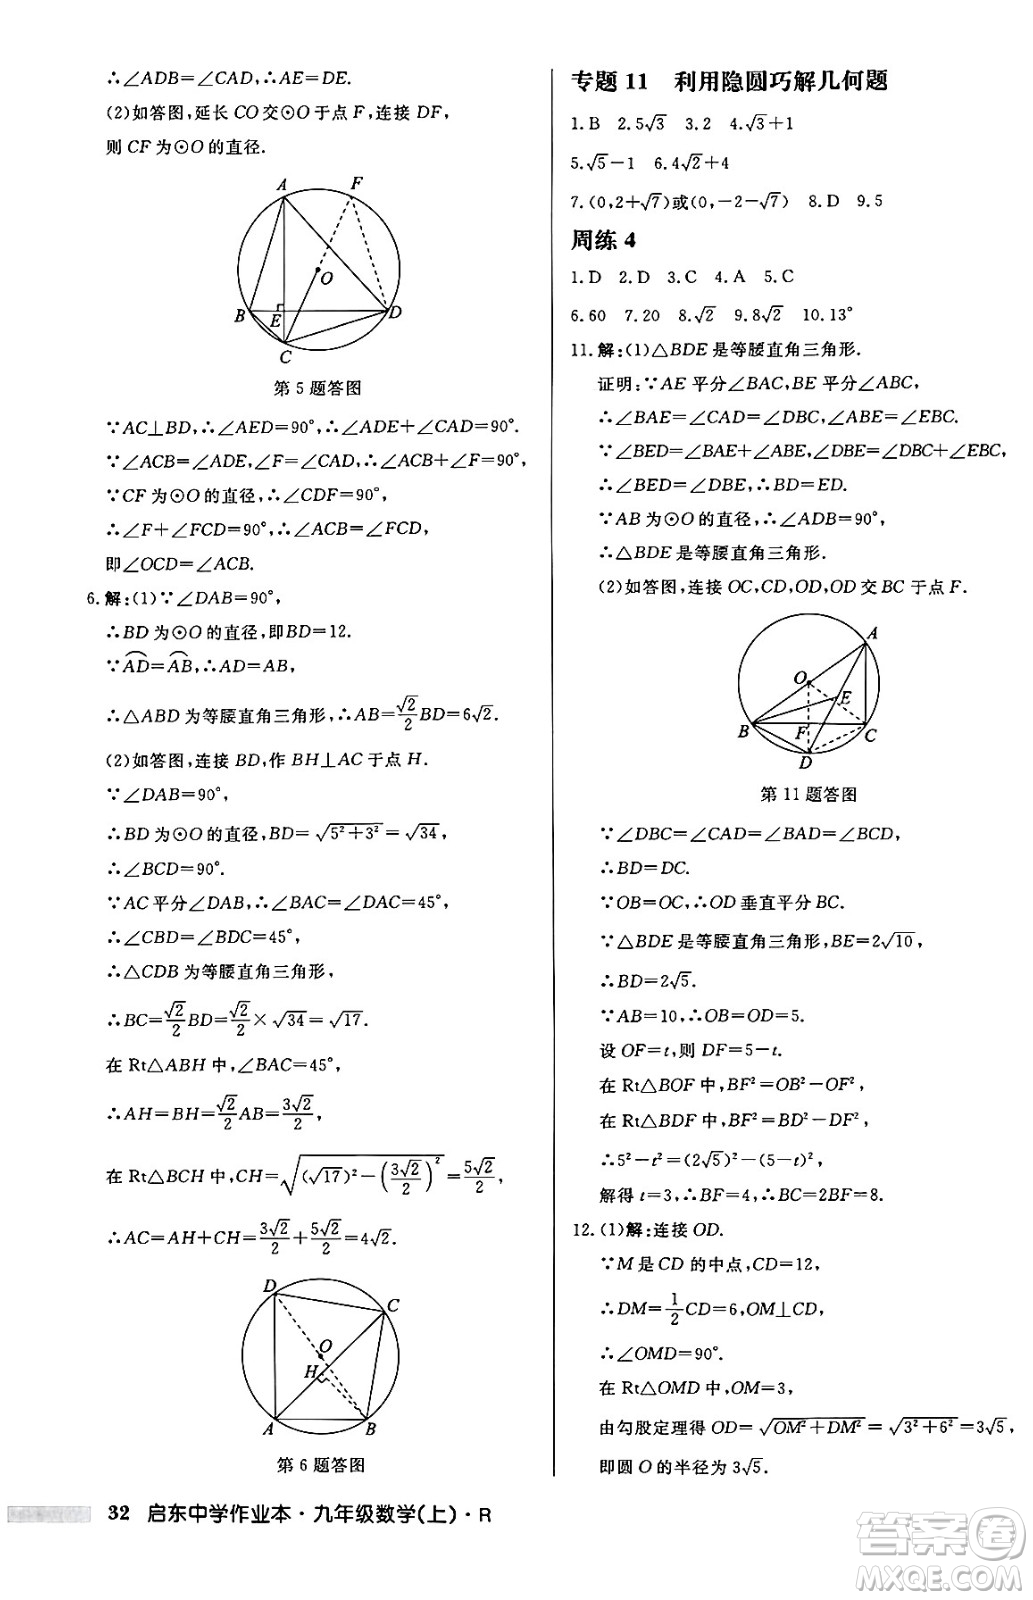 ∴∠ADB=∠CAD,∴AE=DE.
(2)如答图,延长 CO交⊙O于点 F,连接 DF,
则 CF 为⊙O 的直径.
A
F
O
B
E
D
C
第 5 题答图
∵AC⊥BD,∴∠AED=90°,∴∠ADE+∠CAD=90°.
∵∠ACB=∠ADE,∠F=∠CAD,∴∠ACB+∠F=90°,
∵CF 为⊙O 的直径,∴∠CDF=90°,
∴∠F+∠FCD=90°,∴∠ACB=∠FCD,
即∠OCD=∠ACB.
6.解:(1)∵∠DAB=90°,
∴BD 为⊙O 的直径,即BD=12.
∵⌒AD=⌒AB,∴AD=AB,
∴△ABD 为等腰直角三角形,∴AB=√2/2 BD=6√2.
(2)如答图,连接 BD,作 BH⊥AC于点 H.
∵∠DAB=90°,
∴BD 为⊙O 的直径,BD=√(5²+3²)=√34,
∴∠BCD=90°.
∵AC平分∠DAB,∴∠BAC=∠DAC=45°,
∴∠CBD=∠BDC=45°,
∴△CDB 为等腰直角三角形,
∴BC=√2/2 BD=√2/2×√34=√17.
在 Rt△ABH 中,∠BAC=45°,
∴AH=BH=√2/2 AB=3√2/2,
在 Rt△BCH 中,CH=√((√17)²-(3√2/2)²)=5√2/2,
∴AC=AH+CH=3√2/2+5√2/2=4√2.
D
C
O
H
A
B
第 6 题答图
专题 11 利用隐圆巧解几何题
1.B 2.5√3 3.2 4.√3+1
5.√5-1 6.4√2+4
7.(0,2+√7)或(0,-2-√7) 8.D 9.5
周练 4
1.D 2.D 3.C 4.A 5.C
6.60 7.20 8.√2 9.8√2 10.13°
11.解:(1)△BDE 是等腰直角三角形.
证明:∵AE 平分∠BAC,BE 平分∠ABC,
∴∠BAE=∠CAD=∠DBC,∠ABE=∠EBC.
∵∠BED=∠BAE+∠ABE,∠DBE=∠DBC+∠EBC,
∴∠BED=∠DBE,∴BD=ED.
∵AB 为⊙O 的直径,∴∠ADB=90°,
∴△BDE 是等腰直角三角形.
(2)如答图,连接 OC,CD,OD,OD 交 BC 于点 F.
A
O
E
B
F
C
D
第 11 题答图
∵∠DBC=∠CAD=∠BAD=∠BCD,
∴BD=DC.
∵OB=OC,∴OD 垂直平分 BC.
∵△BDE 是等腰直角三角形,BE=2√10,
∴BD=2√5.
∵AB=10,∴OB=OD=5.
设 OF=t,则 DF=5-t.
在 Rt△BOF 中,BF²=OB²-OF²,
在 Rt△BDF 中,BF²=BD²-DF²,
∴5²-t²=(2√5)²-(5-t)²,
解得 t=3,∴BF=4,∴BC=2BF=8.
12.(1)解:连接 OD.
∵M 是 CD 的中点,CD=12,
∴DM=1/2 CD=6,OM⊥CD,
∴∠OMD=90°.
在 Rt△OMD 中,OM=3,
由勾股定理得 OD=√(OM²+DM²)=√(3²+6²)=3√5,
即圆 O 的半径为 3√5.
32 启东中学作业本·九年级数学(上)·R
答案圈
MXQE.COM